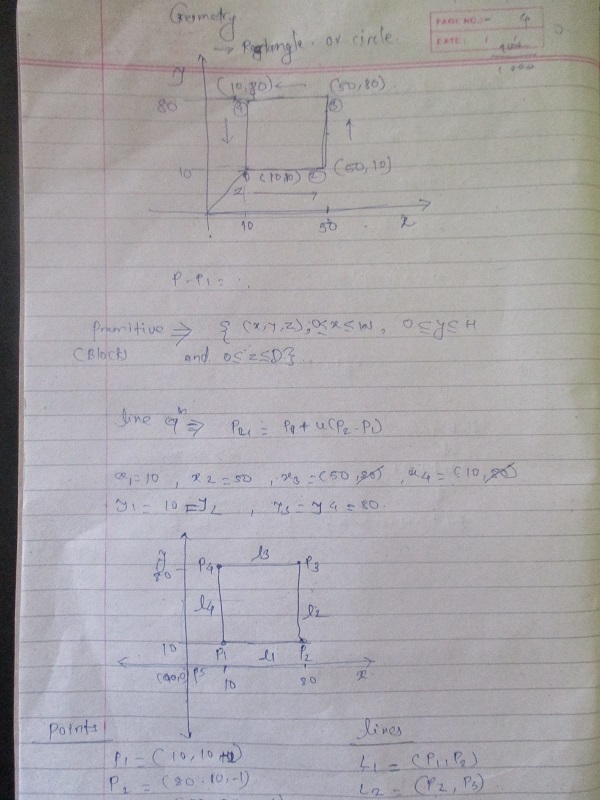 Geometry
→ Rectangle or circle.
PAGE NO.:- 4
DATE: / /
y
(10,80) ← (50,80)
80 4 3
↓ ↑
10 (10,10) 2 (50,10)
Z →
10 50 x
P - P1 = .
Primitive ⇒ { (x,y,z); 0≤x≤W, 0≤y≤H
(Block) and 0≤z≤D}
line eqn ⇒ = P1 + u(P2-P1)
x1=10, x2=50, x3=(50,80), x4=(10,80)
y1=10=y2, y3=y4=80.
y
80 P4 l3 P3
l4 l2
10 P1 l1 P2
P5 10 80 x
Points lines
P1=(10,10 L1=(P1,P2)
P2=(80.10,-1) L2=(P2,P3)